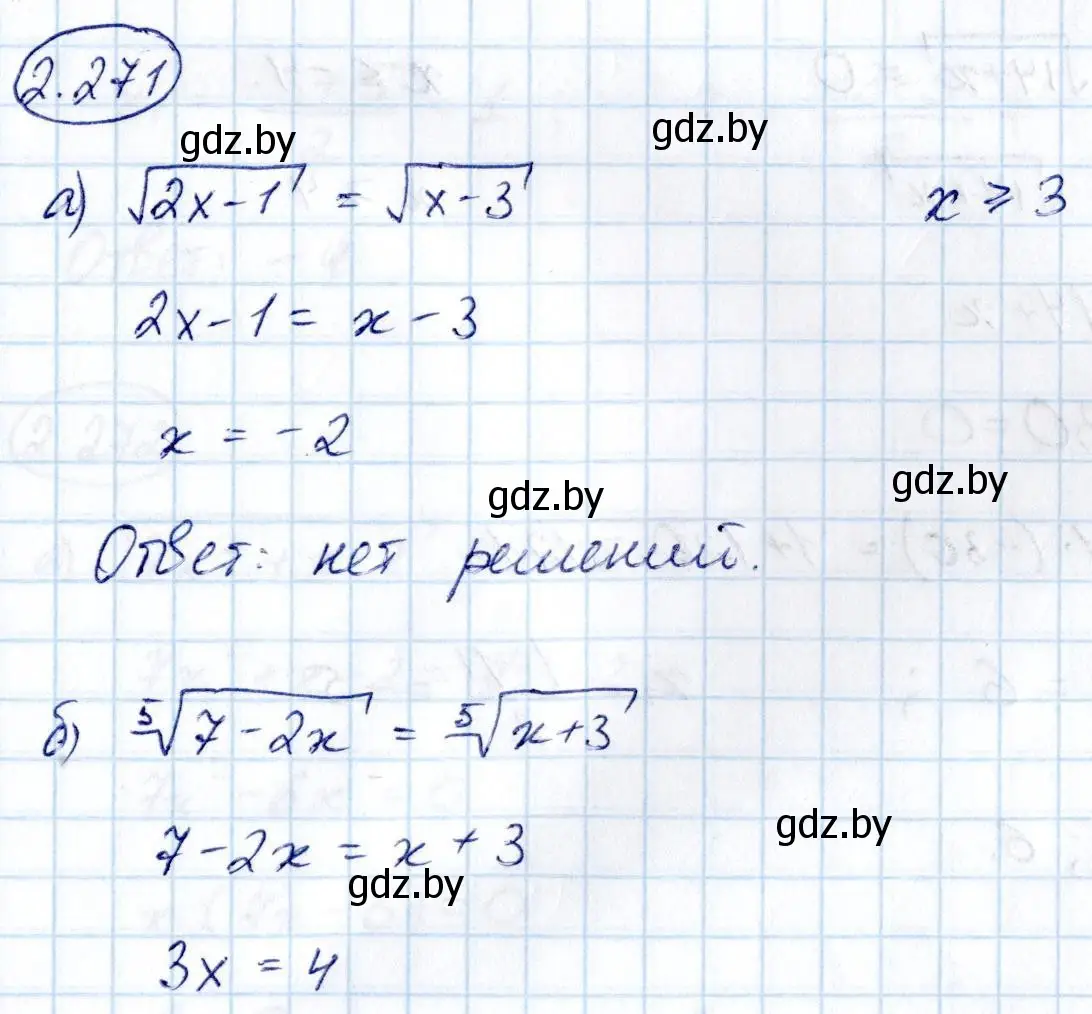 2.271
gdz.by
gdz.by
а) √(2x-1) = √(x-3) x ⩾ 3
2x-1 = x-3
x = -2
gdz.by
gdz.by
Ответ: нет решений.
б) ⁵√(7-2x) = ⁵√(x+3)
gdz.by
7-2x = x+3
gdz.by
3x = 4